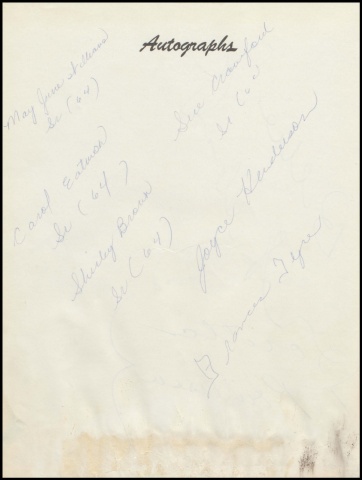 Autographs
May June
Sr (64)
Sue Crawford
Sr (60
Carol Eatmon
Sr (64)
Shirley Brown
Sr (64)
Joyce Henderson
Frances Tyre